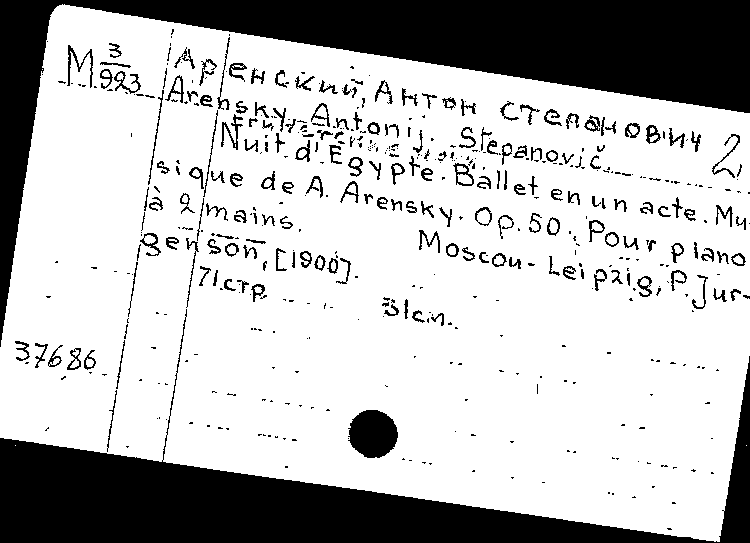 М 3/923 Аренский, Антон Степанович 2
Arensky, Antonij Stepanovič.
Nuit d'Egypte. Ballet en un acte. Mu-
sique de A. Arensky. Op. 50. Pour piano
à 2 mains. Moscou-Leipzig, P. Jur-
genson, [1900].
71 стр 31 см.
37686